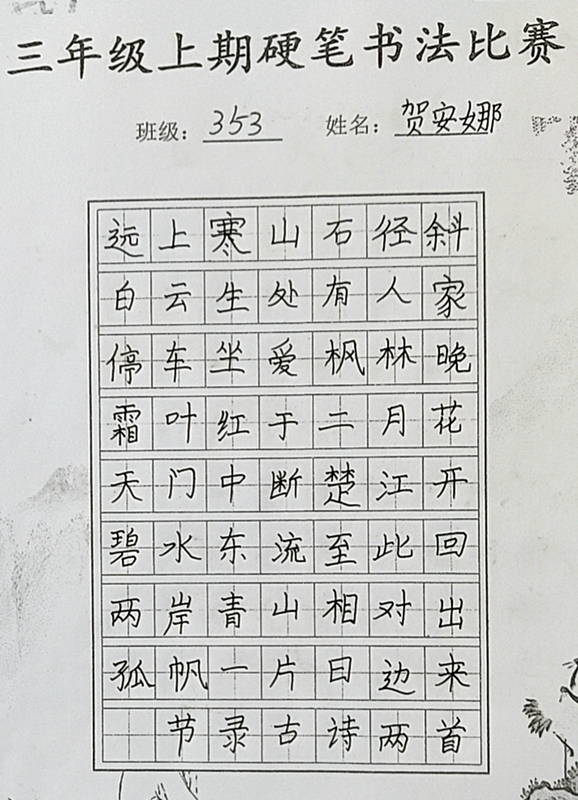 三年级上期硬笔书法比赛
班级：353 姓名：贺安娜
远上寒山石径斜
白云生处有人家
停车坐爱枫林晚
霜叶红于二月花
天门中断楚江开
碧水东流至此回
两岸青山相对出
孤帆一片日边来
节录古诗两首